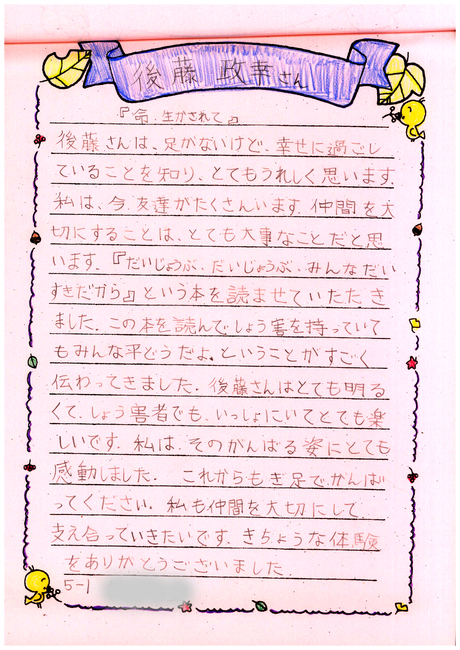 後藤 政幸さん
『命 生かされて』
後藤さんは、足がないけど、幸せに過ごし
ていることを知り、とてもうれしく思います。
私は、今、友達がたくさんいます。仲間を大
切にすることは、とても大事なことだと思
います。『だいじょうぶ、だいじょうぶ、みんなだい
すきだから』という本を読ませていただき
ました。この本を読んでしょう害を持っていて
もみんな平どうだよ。ということがすごく
伝わってきました。後藤さんはとても明る
くて、しょう害者でも、いっしょにいてとても楽
しいです。私は、そのがんばる姿にとても
感動しました。これからもぎ足でがんば
ってください。私も仲間を大切にして、
支え合っていきたいです。きちょうな体験
をありがとうございました。
5-1